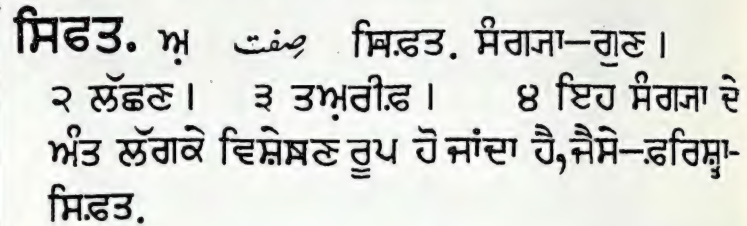 ਸਿਫਤ. ਅ਼ صِفت ਸਿਫ਼ਤ. ਸੰਗ੍ਯਾ—ਗੁਣ।
੨ ਲੱਛਣ। ੩ ਤਅ਼ਰੀਫ਼। ੪ ਇਹ ਸੰਗ੍ਯਾ ਦੇ
ਅੰਤ ਲੱਗਕੇ ਵਿਸ਼ੇਸ਼ਣ ਰੂਪ ਹੋ ਜਾਂਦਾ ਹੈ, ਜੈਸੇ—ਫ਼ਰਿਸ਼੍ਤਾ-
ਸਿਫ਼ਤ.